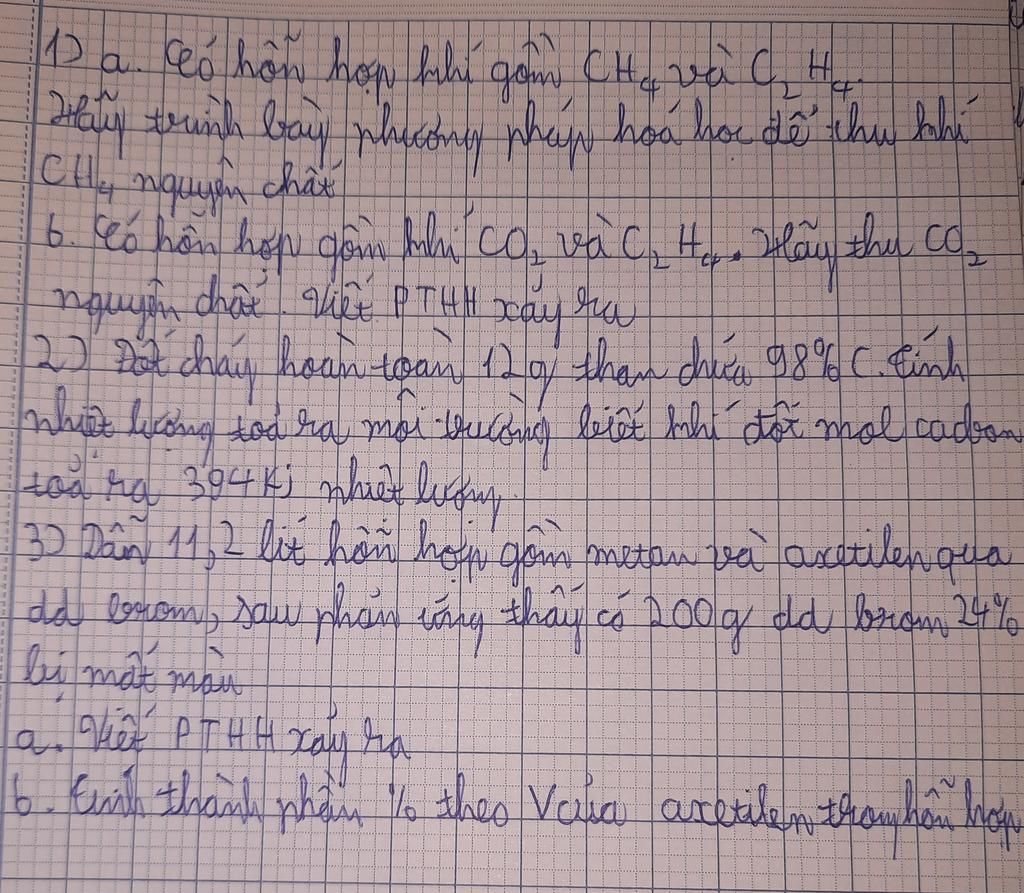 1) a. Có hỗn hợp khí gồm CH₄ và C₂H₄.
Hãy trình bày phương pháp hoá học để thu khí
CH₄ nguyên chất
b. Có hỗn hợp gồm khí CO₂ và C₂H₄. Hãy thu CO₂
nguyên chất. Viết PTHH xảy ra
2) Đốt cháy hoàn toàn 12g than chứa 98% C. Tính
nhiệt lượng toả ra môi trường biết khi đốt mol cacbon
toả ra 394 Kj nhiệt lượng.
3) Dẫn 11,2 lít hỗn hợp gồm metan và axetilen qua
dd brom, sau phản ứng thấy có 200g dd brom 24%
bị mất màu
a. Viết PTHH xảy ra
b. Tính thành phần % theo V của axetilen trong hỗn hợp